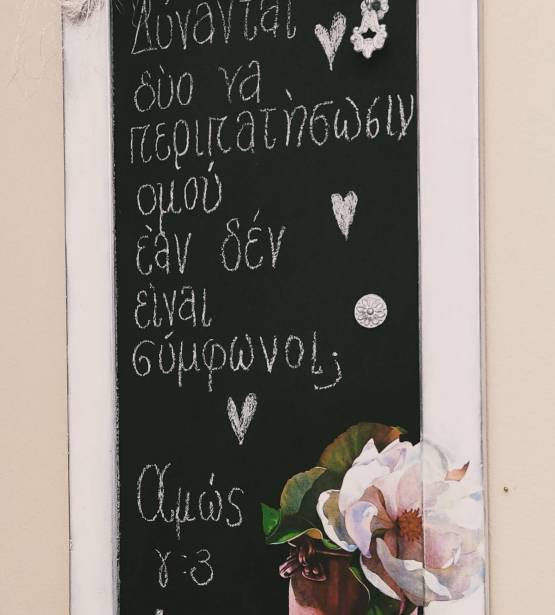 Δύνανται
δύο να
περιπατήσωσιν
ομού
ἐὰν δέν
είναι
σύμφωνοι;
Αμώς
γ:3